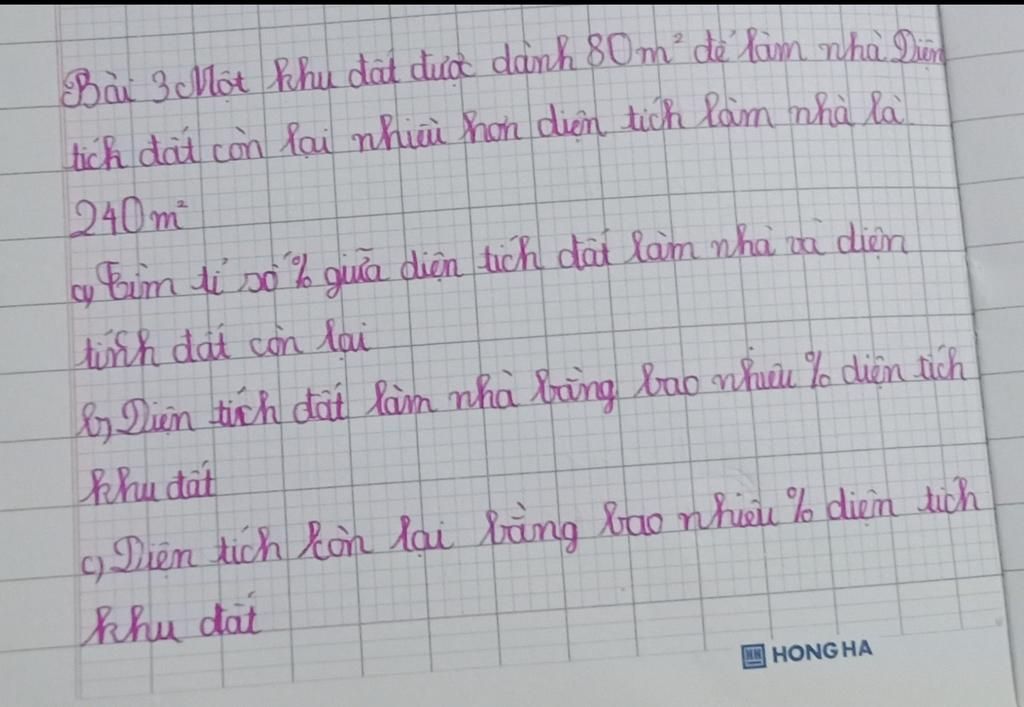 Bài 3 Một khu đất được dành 80m² để làm nhà Diện
tích đất còn lại nhiều hơn diện tích làm nhà là
240m²
a, Tìm tỉ số % giữa diện tích đất làm nhà và diện
tính đất còn lại
b, Diện tích đất làm nhà bằng bao nhiêu % diện tích
khu đất
c, Diện tích còn lại bằng bao nhiêu % diện tích
khu đất
HONG HA